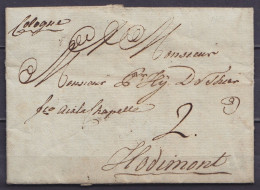 Cologne
Monsieur
Monsieur
fco Aix la Chapelle
2.
Hodimont